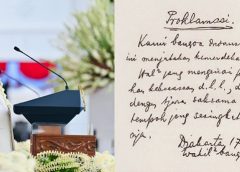 Proklamasi.
Kami bangsa Indones
ini menjatakan kemerdeka
Hal² yang mengenai p
han kekoeasaan d.l.l., d
dengan tjara saksama
tempoh yang sesingkat
nja.
Djakarta 17
Wakil² bang